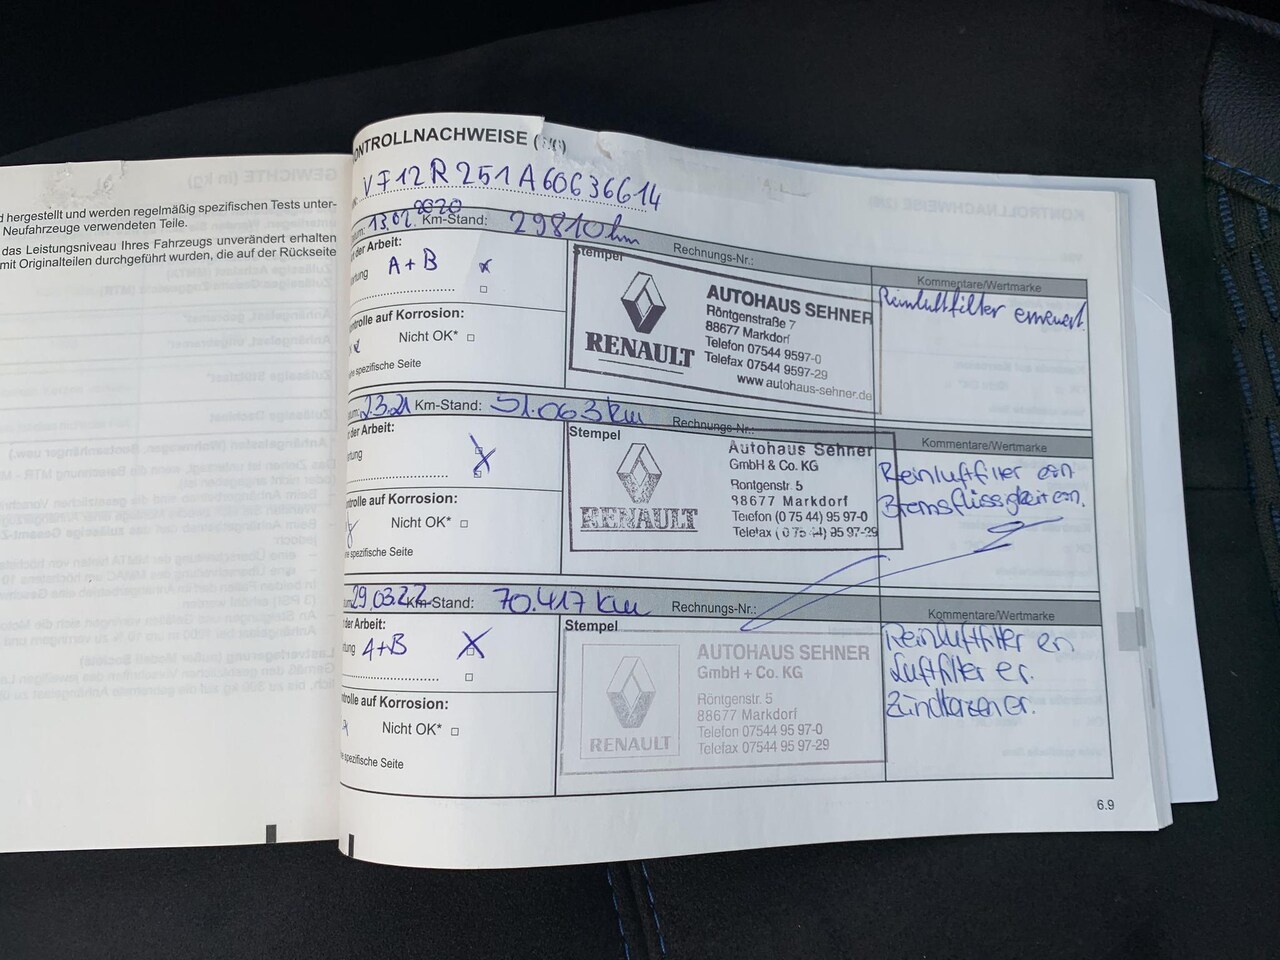 d hergestellt und werden regelmäßig spezifischen Tests unter-
Neufahrzeuge verwendeten Teile.
das Leistungsniveau Ihres Fahrzeugs unverändert erhalten
mit Originalteilen durchgeführt wurden, die auf der Rückseite
ONTROLLNACHWEISE
VF12R251A60636614
13.01.2020 Km-Stand: 29810 km Rechnungs-Nr.:
der Arbeit:
A+B
ntrolle auf Korrosion:
Nicht OK*
spezifische Seite
Stempel
RENAULT
AUTOHAUS SEHNER
Röntgenstraße 7
88677 Markdorf
Telefon 07544 9597-0
Telefax 07544 9597-29
www.autohaus-sehner.de
Kommentare/Wertmarke
Reinluftfilter erneuert.
2.3.21 Km-Stand: 51.063 km Rechnungs-Nr.:
der Arbeit:
ntrolle auf Korrosion:
Nicht OK*
spezifische Seite
Stempel
RENAULT
Autohaus Sehner
GmbH & Co. KG
Röntgenstr. 5
88677 Markdorf
Telefon (0 75 44) 95 97-0
Telefax (0 75 44) 95 97-29
Kommentare/Wertmarke
Reinluftfilter ern
Bremsflüssigkeit ern.
29.03.22 Km-Stand: 70.417 km Rechnungs-Nr.:
der Arbeit:
A+B
ntrolle auf Korrosion:
Nicht OK*
spezifische Seite
Stempel
RENAULT
AUTOHAUS SEHNER
GmbH + Co. KG
Röntgenstr. 5
88677 Markdorf
Telefon 07544 95 97-0
Telefax 07544 95 97-29
Kommentare/Wertmarke
Reinluftfilter en
Luftfilter er.
Zündkerzen er.
6.9